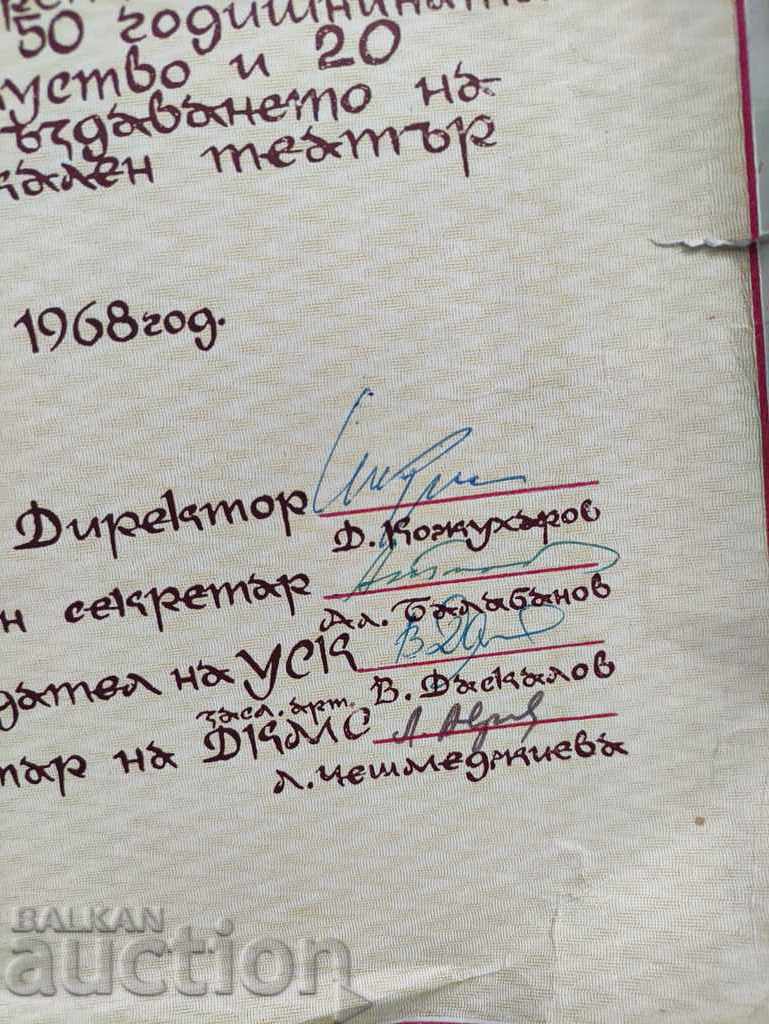 50 годишнинат
уство и 20
ъздаването на
кален театър
1968 год.
Директор
Д. Кожухаров
н секретар
Ал. Балабанов
дател на УСК
засл. арт. В. Даскалов
тар на ДКМС
Л. Чешмеджиева
BALKAN
auction